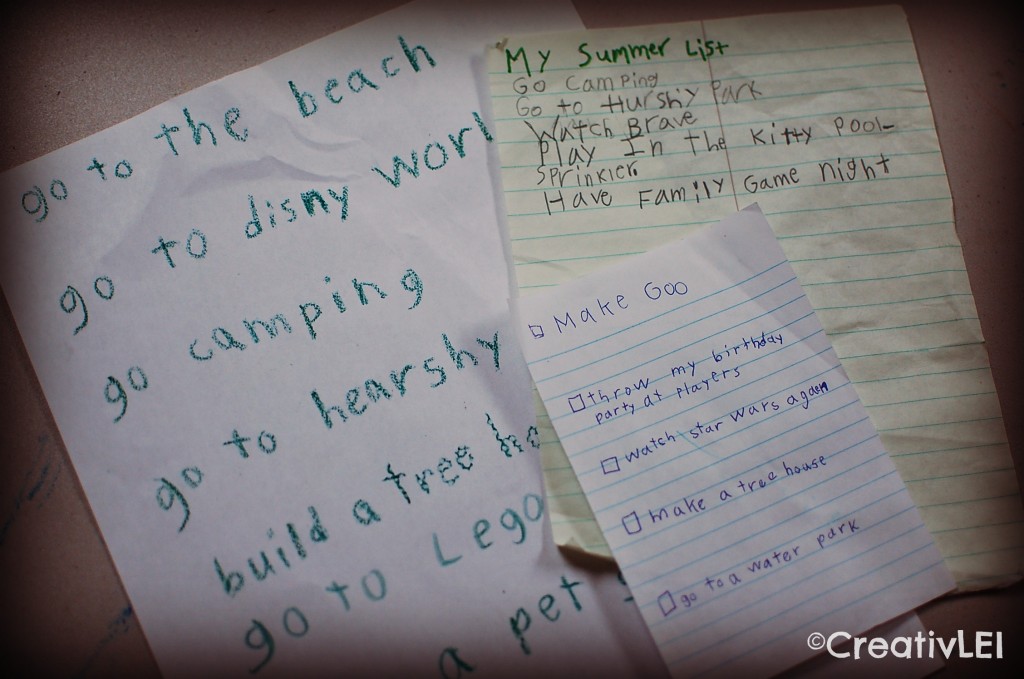 go to the beach
go to disny worl
go camping
go to hearshy
build a tree ho
go to Lego
a pet
My Summer List
Go Camping
Go to Hurshy Park
Watch Brave
Play In The Kitty Pool-
Sprinkler
Have Family Game night
Make Goo
throw my birthday
party at players
watch star wars again
make a tree house
go to a water park
©CreativLEI